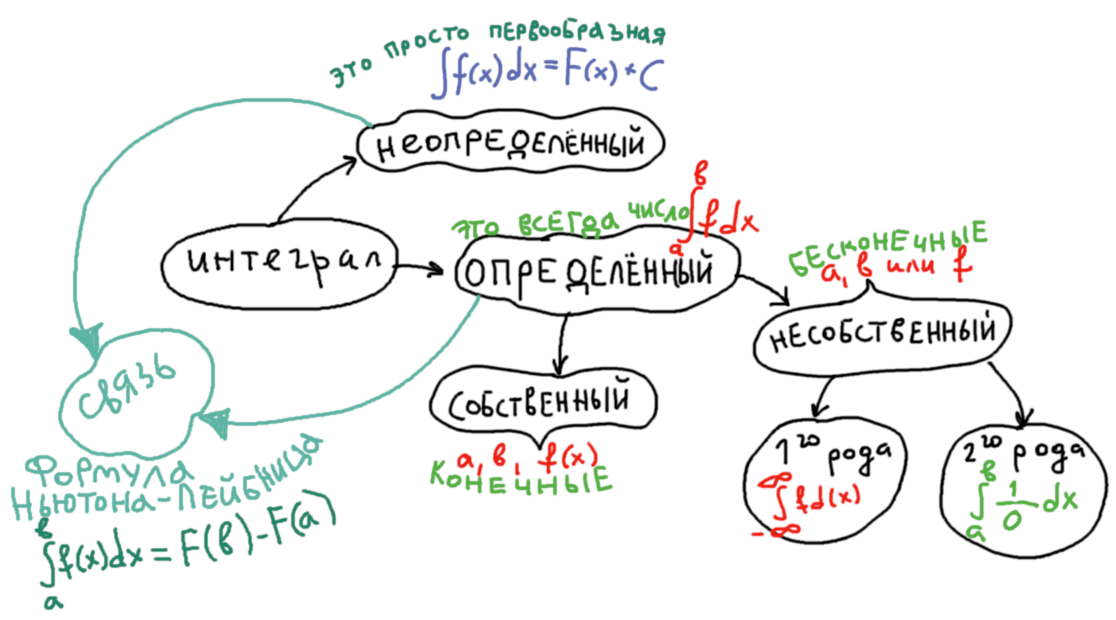 это просто первообразная
∫f(x)dx = F(x) + C
неопределённый
интеграл
это всегда число
в
∫fdx
а
определённый
бесконечные
а, в или f
несобственный
собственный
а, в, f(x)
конечные
1го рода
∞
∫fd(x)
-∞
2го рода
в
∫ 1/0 dx
а
связь
Формула
Ньютона-Лейбница
в
∫f(x)dx = F(в) - F(а)
а